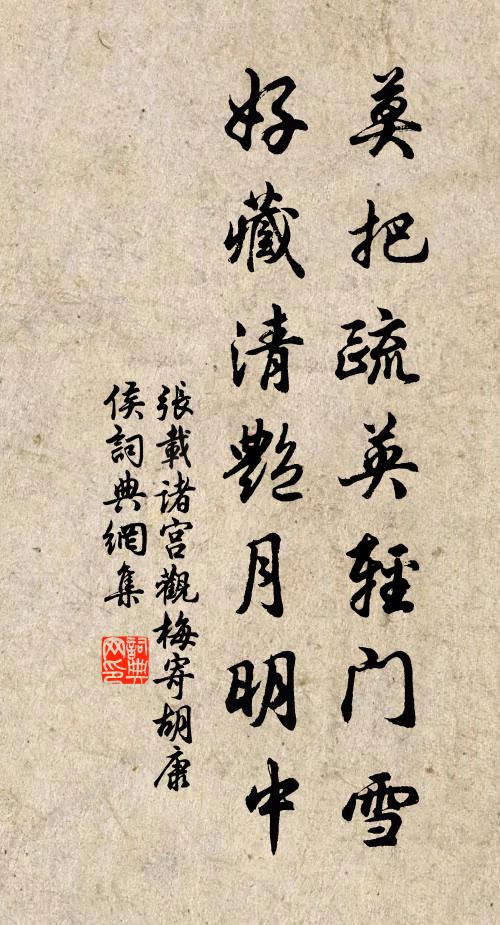 莫把疏英輕門雪
好藏清艷月明中
張載諸宮觀梅寄胡康
侯詞典網集
詞典
网印